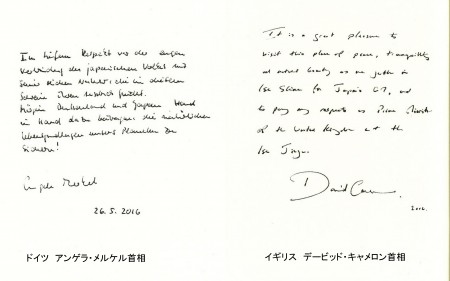 Im tiefen Respekt vor der engen
Verbindung des japanischen Volkes mit
seiner reichen Natur, die in diesem
Schrein ihren Ausdruck findet.
Mögen Deutschland und Japan Hand
in Hand dazu beitragen, die natürlichen
Lebensgrundlagen unseres Planeten zu
sichern!
Angela Merkel
26.5.2016
ドイツ アンゲラ・メルケル首相
It is a great pleasure to
visit this place of peace, tranquillity
and natural beauty as we gather in
Ise Shima for Japan's G7, and
to pay my respects as Prime Minister
of the United Kingdom at the
Ise Jingu.
David Cameron
2016.
イギリス デービッド・キャメロン首相